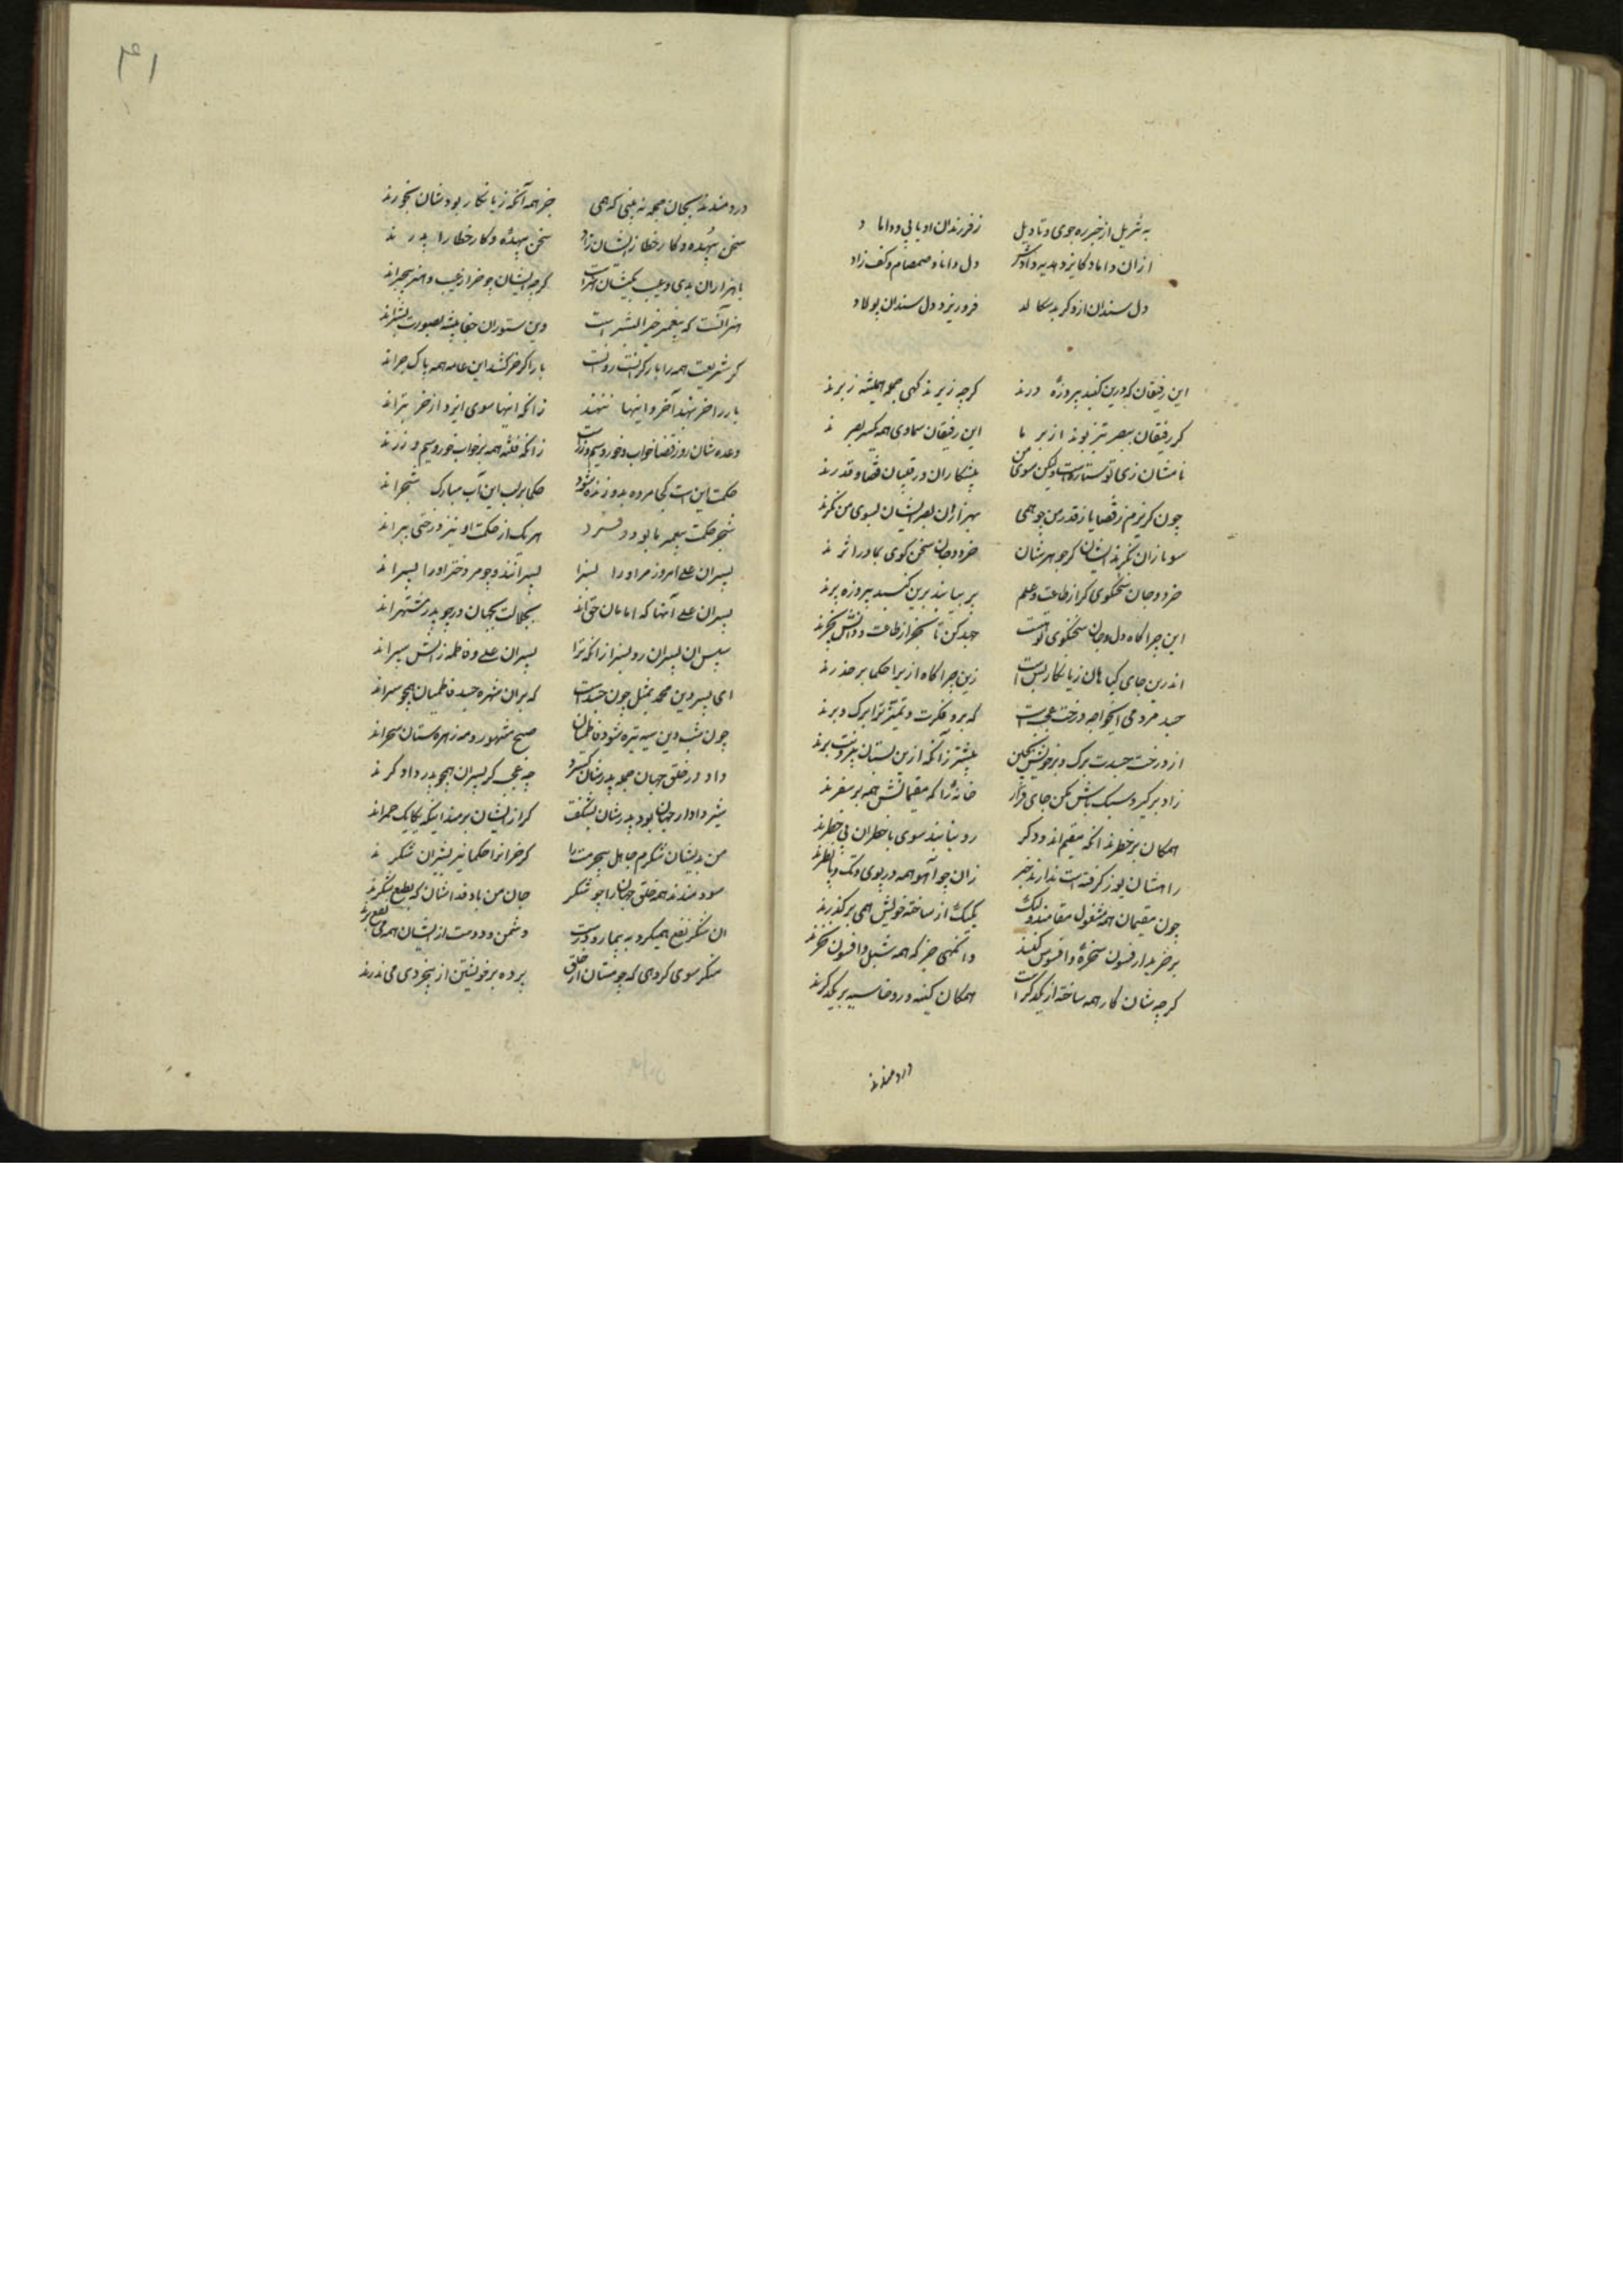 به تنزیل از خبر ره جوی و تاویل ز فرزندان او یابی و داماد
از آن داماد کایزد هدیه دادش دل دانا و صمصام و کف زاد
دل سندان ازو کر بد سکالد فرو ریزد دل سندان پولاد
این رفیقان که درین کنبد پیروزه درند کرچه زیرند کهی جمله همیشه زبرند
کر رفیقان ببصر تیز بوند از بر ما این رفیقان سماوی همه یکسر بصرند
نامشان زی تو ستاره است ولیکن سوی من پیشکاران و رقیبان قضا و قدرند
چون کریزم ز قضا یا ز قدر من چو همی بهزاران بصر ایشان بسوی من نکرند
سوما زان نکرند ایشان کز جوهرشان خرد و جان سخن کوی بما در اثرند
خرد و جان سخنکوی کر از طاعت و علم پر بیابند برین کنبد پیروزه پرند
این چراکاه دل و جان سخنکوی تو است جهد کن تا بجز از طاعت و دانش نچرند
اندرین جای کیاهان زیانکار بس است زین چراکاه ازیرا حکما بر حذرند
جسد مردمی ای خواجه درخت عجبست که برو فکرت و تمییز ترا برک و برند
از درخت جسدت برک و بر خویش بچین پیشتر زانکه ازین بستان بیرونت برند
زاد برکیر و سبک باش مکن جای قرار خانهٔ را که مقیمانش همه بر سفرند
همکان بر خطرند آنکه مقیم اند و دکر ره نیابند سوی با خطران بی خطرند
راهشان یوز کرفته است ندارند خبر زان چو آهو همه در پوی و تک و با بطرند
چون مقیمان همه مشغول مقامند ولیک یکیک از ساخته خویش همی برکذرند
بر خریدار فسون سخره و افسوس کنند وانکهی جز که همه تنبل و افسون نخرند
کرچه شان کار همه ساخته از یکدکر است همکان کینه ور و خاسته بر یکدکرند
دردمندند
۴۱
دردمندند بجان جمله نه بینی که همی جز همه آنکه زیانکار بودشان نخورند
سخن بیهده و کار خطا زایشان زاد سخن بیهده و کار خطا را پدرند
با هنرا ران بدی و عیب یکیشان هنر است کرچه ایشان چو خر از عیب و هنر بیخبرند
هنر آنست که پیغمبر خیر البشر است وین ستوران جفا پیشه بصورت بشرند
کر شریعت همه را بار کرانست رواست بار اکر خر کشد این عامه همه پاک خرند
بار را خر بنهد آخر و اینها ننهند زانکه اینها سوی ایزد از خر بترند
وعده شان روز قضا خواب و خور و سیم و زرست زانکه فتنه همه بر خواب و خور و سیم و زرند
حکمت این است کجا مرده بدو زنده شود حکما بر لب این آب مبارک شجرند
شجر حکمت پیغمبر ما بود و برو هر یک از حکمت او نیز درختی ببرند
پسران علی امروز مر او را بسزا پسرانند و چو مر دختر او را پسرند
پسران علی آنها که امامان حق اند بجلالت بجهان در چو پدر مشتهرند
سپس آن پسران رو پسرا زانکه ترا پسران علی و فاطمه زآتش سپرند
ای پسر دین محمد بمثل چون جسد است که بران شهره جسد فاطمیان همچو سرند
چون شب دین سیه و تیره شود فاطمیان صبح مشهور و مه و زهره و ستاره سحرند
داد در خلق جهان جمله پدرشان کسترد چه عجب کر پسران همچو پدر دادکرند
شیر دادار جهان بود پدرشان نشکفت کر ازیشان برمند اینکه یکایک حمرند
من بدیشان شکرم جاهل بیحرمت را کر خران را حکما شیر نیستان شکرند
سودمندند همه خلق جهان را چو شکر جان من باد فداشان که بطبع شکرند
آن شکر نفع همیکرد به بیمار و درست دشمن و دوست ازیشان همه می نفع برند
منکر سوی کروهی که چو مستان از خلق پرده بر خویشتن از بیخردی می‌بدرند